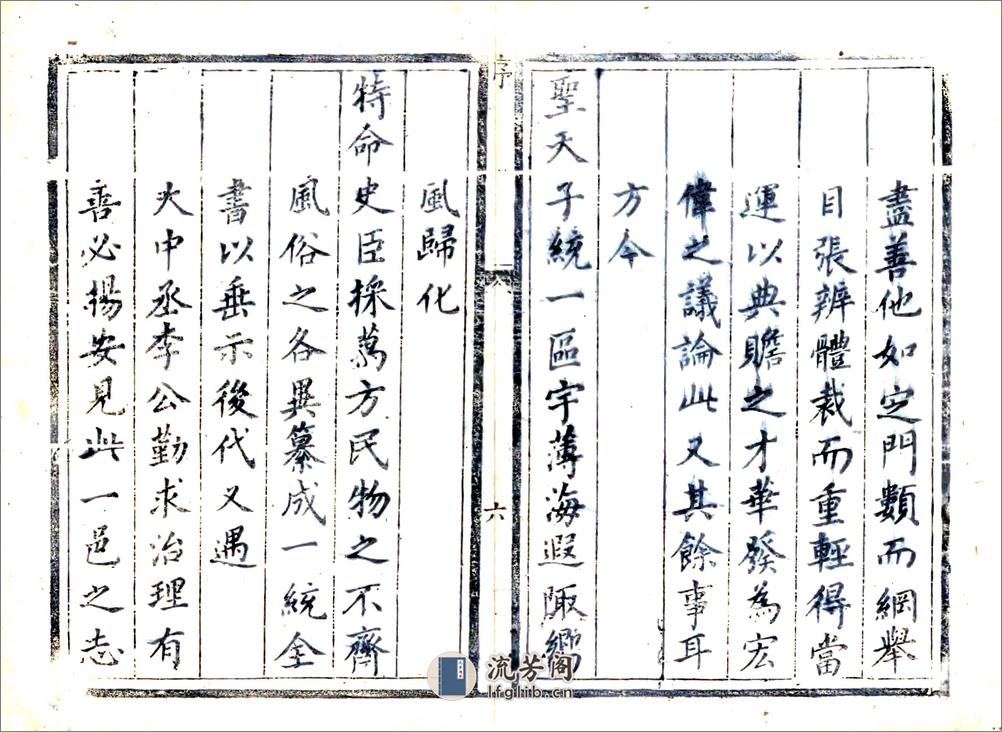 盡善他如定門類而綱舉
目張辨體裁而重輕得當
運以典贍之才華發為宏
偉之議論此又其餘事耳
方今
聖天子統一區宇薄海遐陬嚮
序
六
風歸化
特命史臣採萬方民物之不齊
風俗之各異纂成一統全
書以垂示後代又遇
大中丞李公勤求治理有
善必揚安見此一邑之志
流芳阁
lfglib.cn